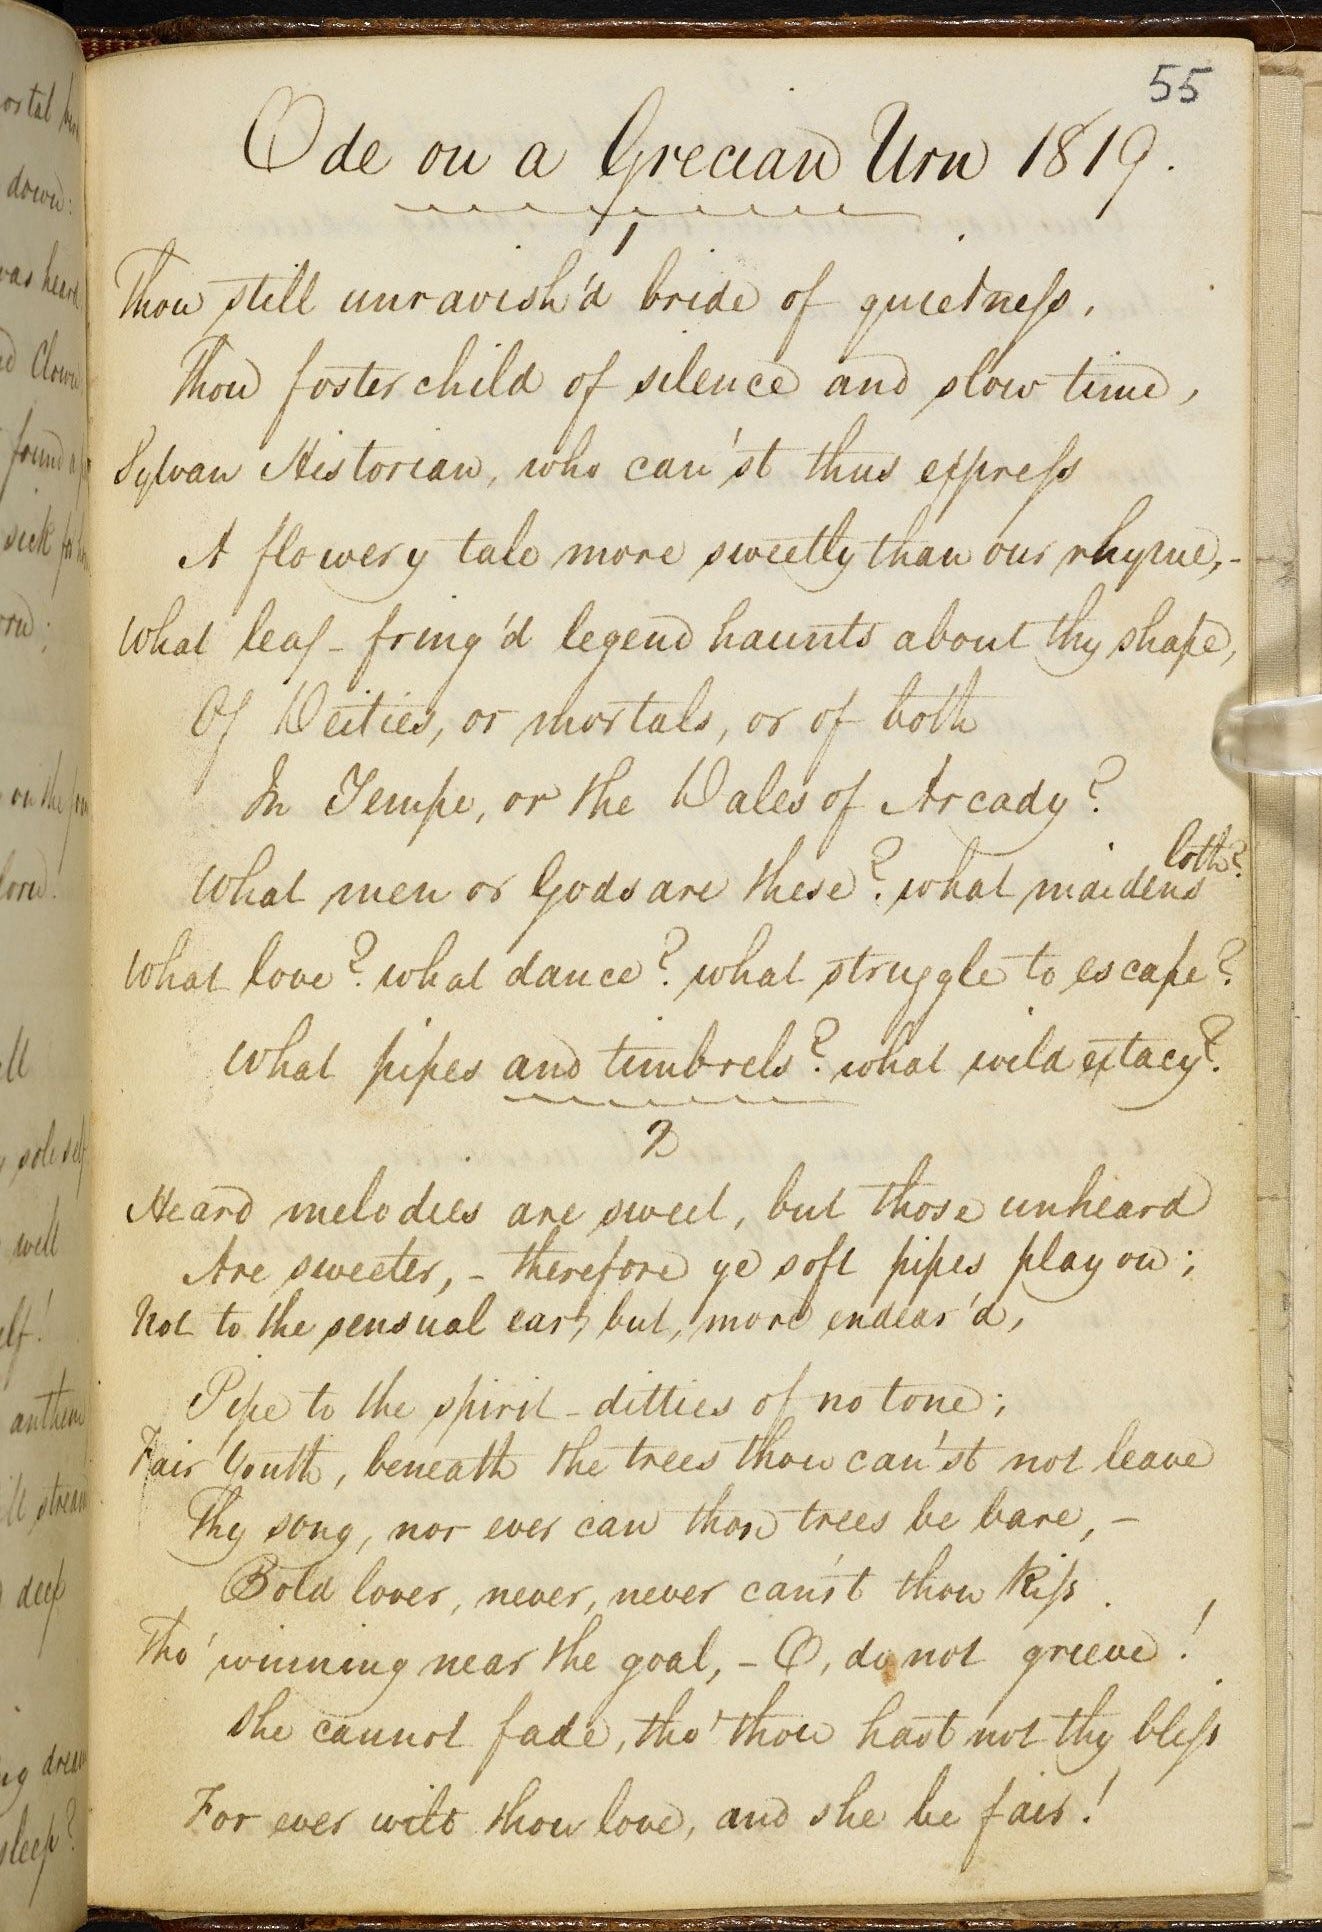 55
Ode on a Grecian Urn 1819.
1
Thou still unravish'd bride of quietness,
Thou foster child of silence and slow time,
Sylvan Historian, who can'st thus express
A flowery tale more sweetly than our rhyme,-
What leaf-fring'd legend haunts about thy shape,
Of Deities, or mortals, or of both
In Tempe, or the Dales of Arcady?
What men or Gods are these? what maidens loth?
What love? what dance? what struggle to escape?
What pipes and timbrels? what wild extacy?
2
Heard melodies are sweet, but those unheard
Are sweeter, - therefore ye soft pipes play on;
Not to the sensual ear, but, more endear'd,
Pipe to the spirit - ditties of no tone;
Fair Youth, beneath the trees thou can'st not leave
Thy song, nor ever can those trees be bare, -
Bold lover, never, never can'st thou kiss
Tho' winning near the goal, - O, do not grieve!
She cannot fade, tho' thou hast not thy bliss
For ever wilt thou love, and she be fair!
down:
was heard
Clown
found a
sick for
on the
self!
anthem
deep
sleep?